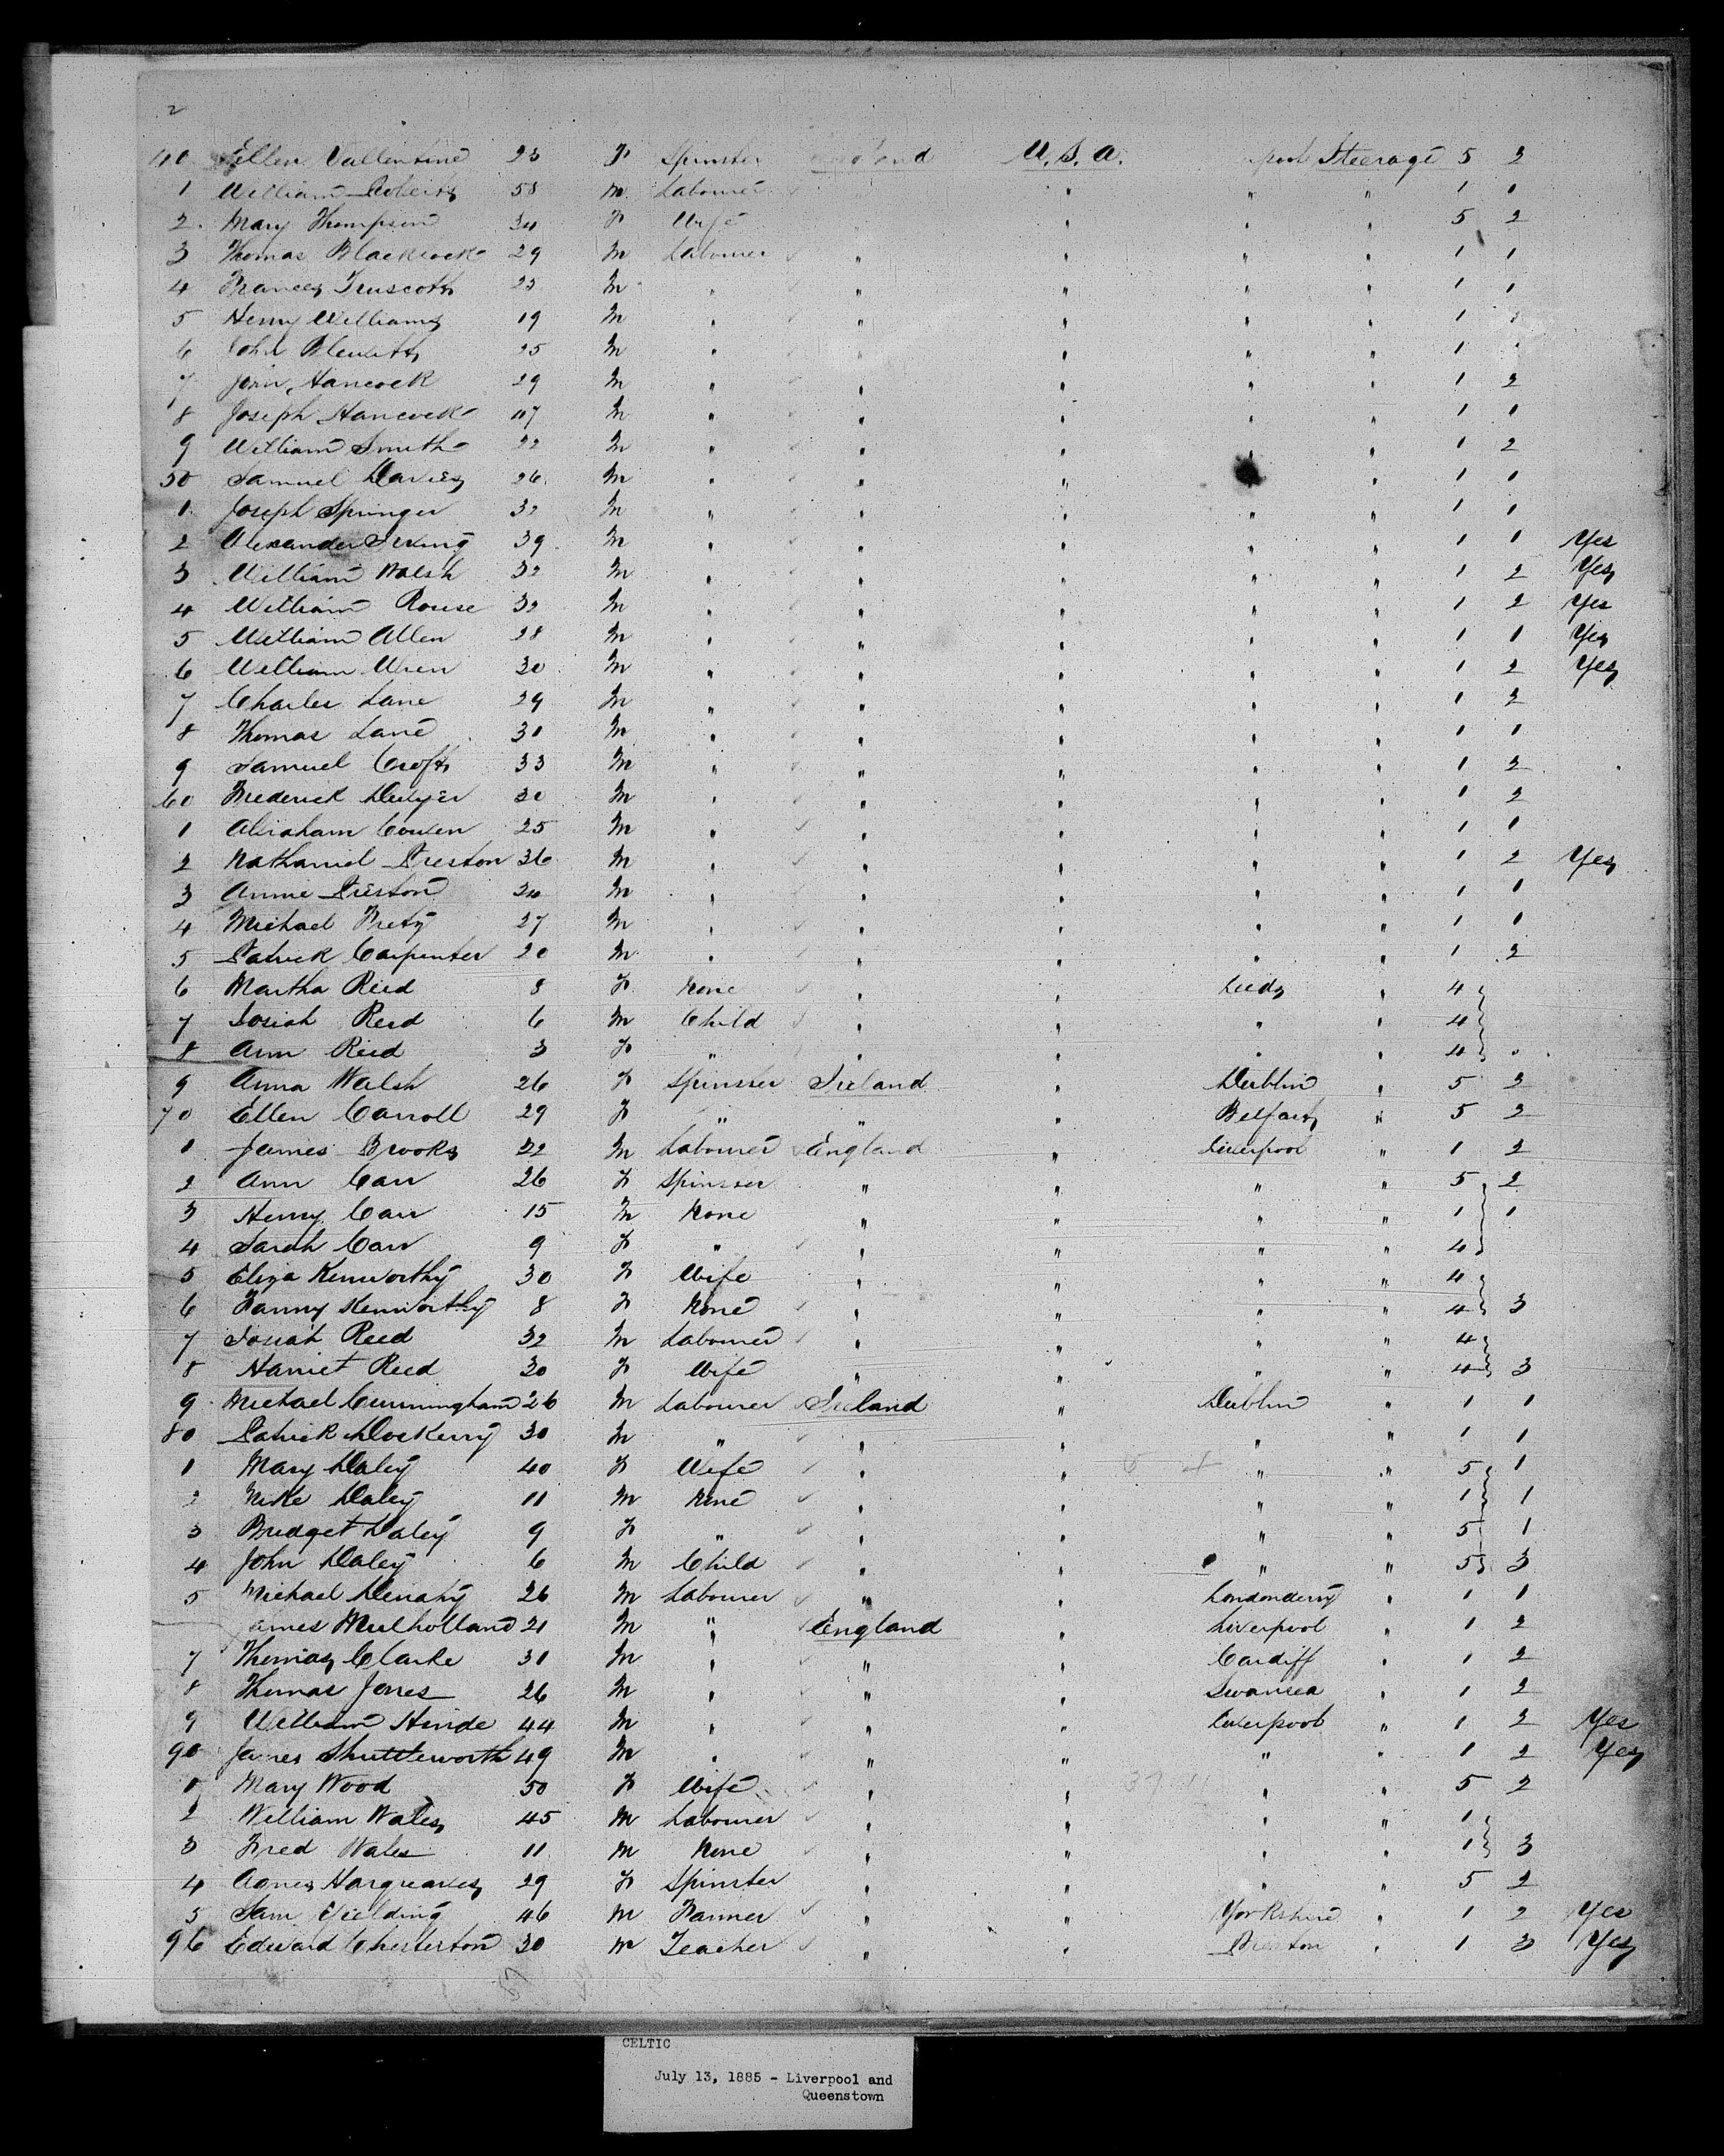 2
40 Ellen Vallentine 23 F Spinster England U.S.A. pool Steerage 5 2
1 William Roberts 58 M Labourer " " " 1 1
2 Mary Thompson 34 F Wife " " " 5 2
3 Thomas Blacklock 29 M Labourer " " " " 1 1
4 Frances Truscott 23 M " " " " " 1 1
5 Henry Williams 19 M " " " " " 1 1
6 John Blewitt 25 M " " " " " 1
7 John Hancock 29 M " " " " " 1 2
8 Joseph Hancock 47 M " " " " " 1 1
9 William Smith 22 M " " " " " 1 2
50 Samuel Davies 26 M " " " " 1 1
1 Joseph Springer 32 M " " " " " 1 1
2 Alexander Irving 39 M " " " " " 1 1 Yes
3 William Walsh 32 M " " " " " 1 2 Yes
4 William Rouse 32 M " " " " " 1 2 Yes
5 William Allen 28 M " " " " " 1 1 Yes
6 William Wren 30 M " " " " " 1 2 Yes
7 Charles Lane 29 M " " " " " 1 2
8 Thomas Lane 30 M " " " " " 1 1
9 Samuel Crofts 33 M " " " " " 1 2
60 Frederick 30 M " " " " " 1 2
1 Abraham Cowen 25 M " " " " " 1 1
2 Nathaniel Preston 36 M " " " " " 1 2 Yes
3 Annie Preston 34 M " " " " " 1 1
4 Michael 27 M " " " " " 1 1
5 Patrick Carpenter 20 M " " " " " 1 2
6 Martha Reed 8 F None " " Leeds " 4
7 Josiah Reed 6 M Child " " " " 4
8 Ann Reed 3 F " " " " " 4
9 Anna Walsh 26 F Spinster Ireland " Dublin " 5 2
70 Ellen Carroll 29 F " " " Belfast " 5 2
1 James Brooks 22 M Labourer England " Liverpool " 1 2
2 Ann Carr 26 F Spinster " " " " 5 2
3 Henry Carr 15 M None " " " " 1 1
4 Sarah Carr 9 F " " " " " 4
5 Eliza Kenworthy 30 F Wife " " " " 4
6 Fanny Kenworthy 8 F None " " " " 4 3
7 Josiah Reed 32 M Labourer " " " " 4
8 Harriet Reed 30 F Wife " " " " 4 3
9 Michael Cunningham 26 M Labourer Ireland " Dublin " 1 1
80 Patrick Doskerry 30 M " " " " " 1 1
1 Mary Daley 40 F Wife " " " " 5 1
2 Mike Daley 11 M None " " " " 1 1
3 Bridget Daley 9 F " " " " " 5 1
4 John Daley 6 M Child " " " " 5 3
5 Michael Denahy 26 M Labourer " " Londonderry " 1 1
James Mulholland 21 M " England " Liverpool " 1 2
7 Thomas Clarke 31 M " " " Cardiff " 1 2
8 Thomas Jones 26 M " " " Swansea " 1 2
9 William Hinde 44 M " " " Liverpool " 1 2 Yes
90 James Shuttleworth 49 M " " " " " 1 2 Yes
1 Mary Wood 50 F Wife " " " " 5 2
2 William Wales 45 M Labourer " " " " 1
3 Fred Wales 11 M None " " " " 1 3
4 Agnes Hargreaves 29 F Spinster " " " " 5 2
5 Sam Yielding 46 M Farmer " " Yorkshire " 1 2 Yes
96 Edward Chesterton 30 M Teacher " " Preston " 1 3 Yes
CELTIC
July 13, 1885 - Liverpool and
Queenstown